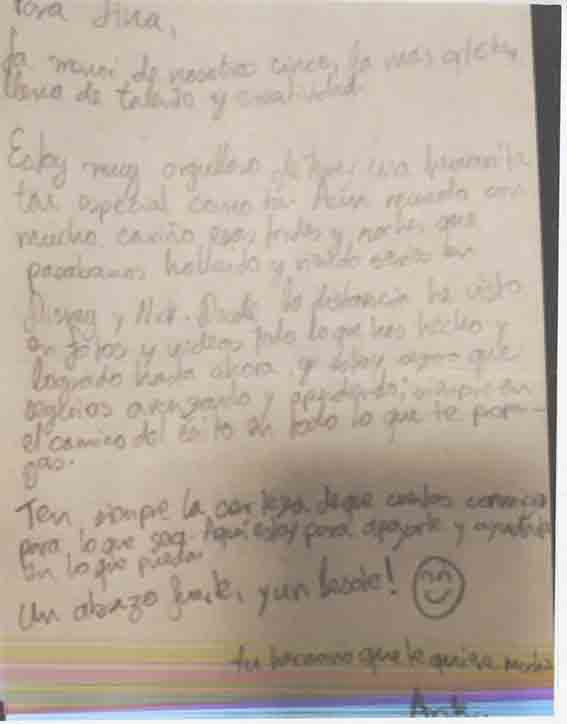 Para Jina,
La menor de nosotros cinco, la más
llena de talento y creatividad.
Estoy muy orgulloso de tener una hermanita
tan especial como tú. Aún recuerdo con
mucho cariño esas tardes y noches que
pasábamos hablando y viendo series en
Disney y Nick. Desde la distancia he visto
en fotos y videos todo lo que has hecho y
logrado hasta ahora, y estoy seguro que
seguirás avanzando y aprendiendo, siempre en
el camino del éxito en todo lo que te propon-
gas.
Ten siempre la certeza de que cuentas conmigo
para lo que sea. Aquí estoy para apoyarte y ayudarte
en lo que pueda.
Un abrazo fuerte, y un besote!
tu hermano que te quiere mucho